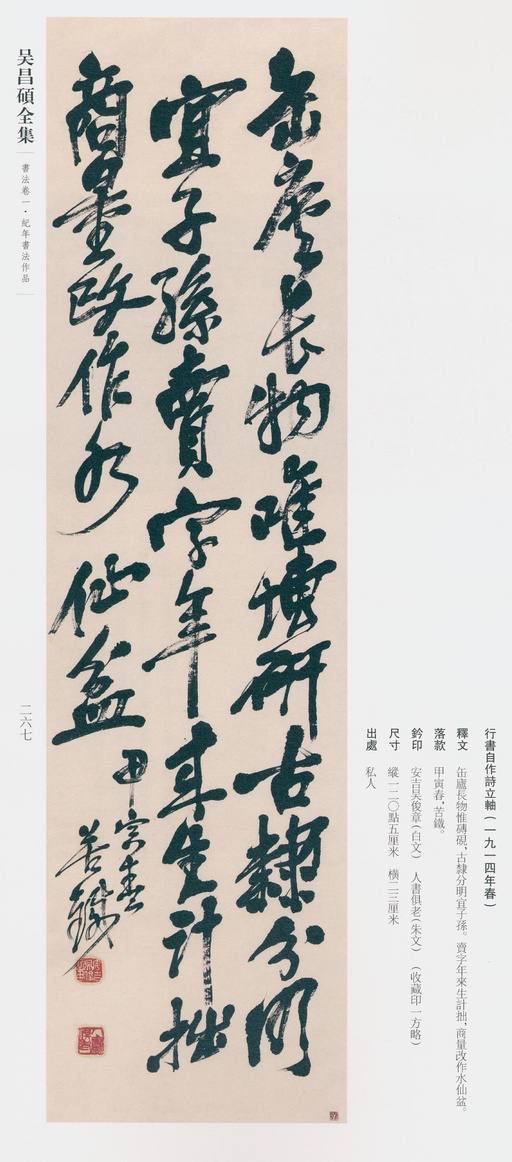 行書自作詩立軸(一九一四年春)
釋文 缶廬長物惟磚硯,古隸分明宜子孫。賣字年來生計拙,商量改作水仙盆。
落款 甲寅春,苦鐵。
鈐印 安吉吴俊章(白文) 人書俱老(朱文) (收藏印一方略)
尺寸 縱一二〇點五厘米 橫二三厘米
出處 私人
缶廬長物唯塼研古隸分明
宜子孫賣字年來生計拙
商量改作水仙盆
甲寅春
苦鐵
吴昌碩全集
書法卷一·紀年書法作品
二六七